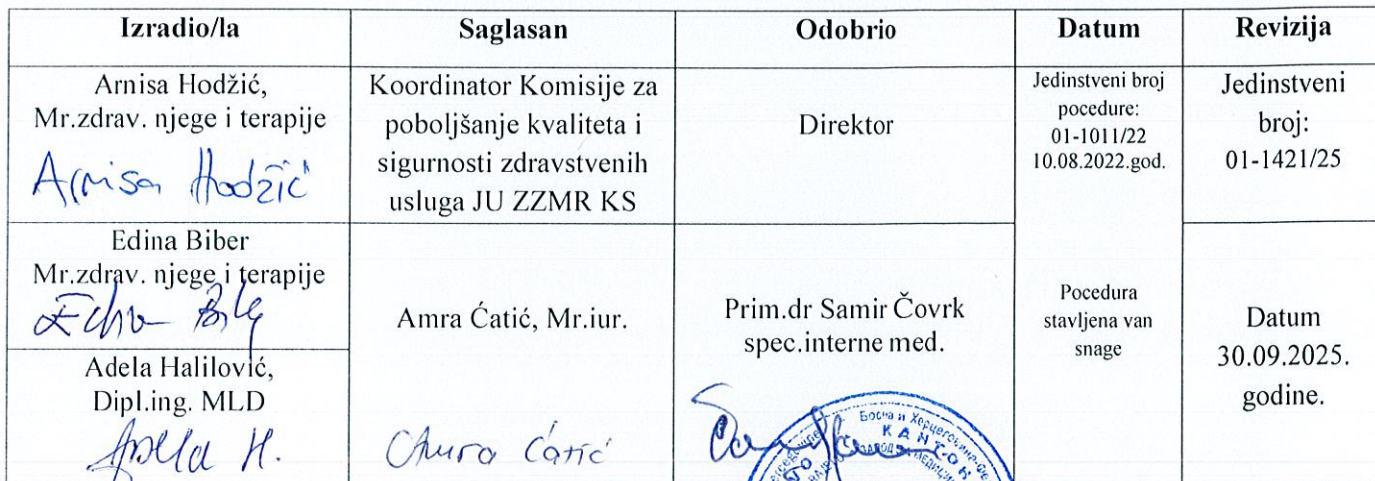 Izradio/la
Saglasan
Odobrio
Datum
Revizija
Arnisa Hodžić,
Mr.zdrav. njege i terapije
Arnisa Hodžić
Koordinator Komisije za
poboljšanje kvaliteta i
sigurnosti zdravstvenih
usluga JU ZZMR KS
Direktor
Jedinstveni broj
pocedure:
01-1011/22
10.08.2022.god.
Jedinstveni
broj:
01-1421/25
Edina Biber
Mr.zdrav. njege i terapije
Adela Halilović,
Dipl.ing. MLD
Adela H.
Amra Ćatić, Mr.iur.
Amra Ćatić
Prim.dr Samir Čovrk
spec.interne med.
Босна и Херцеговина
КАНТОН
Pocedura
stavljena van
snage
Datum
30.09.2025.
godine.